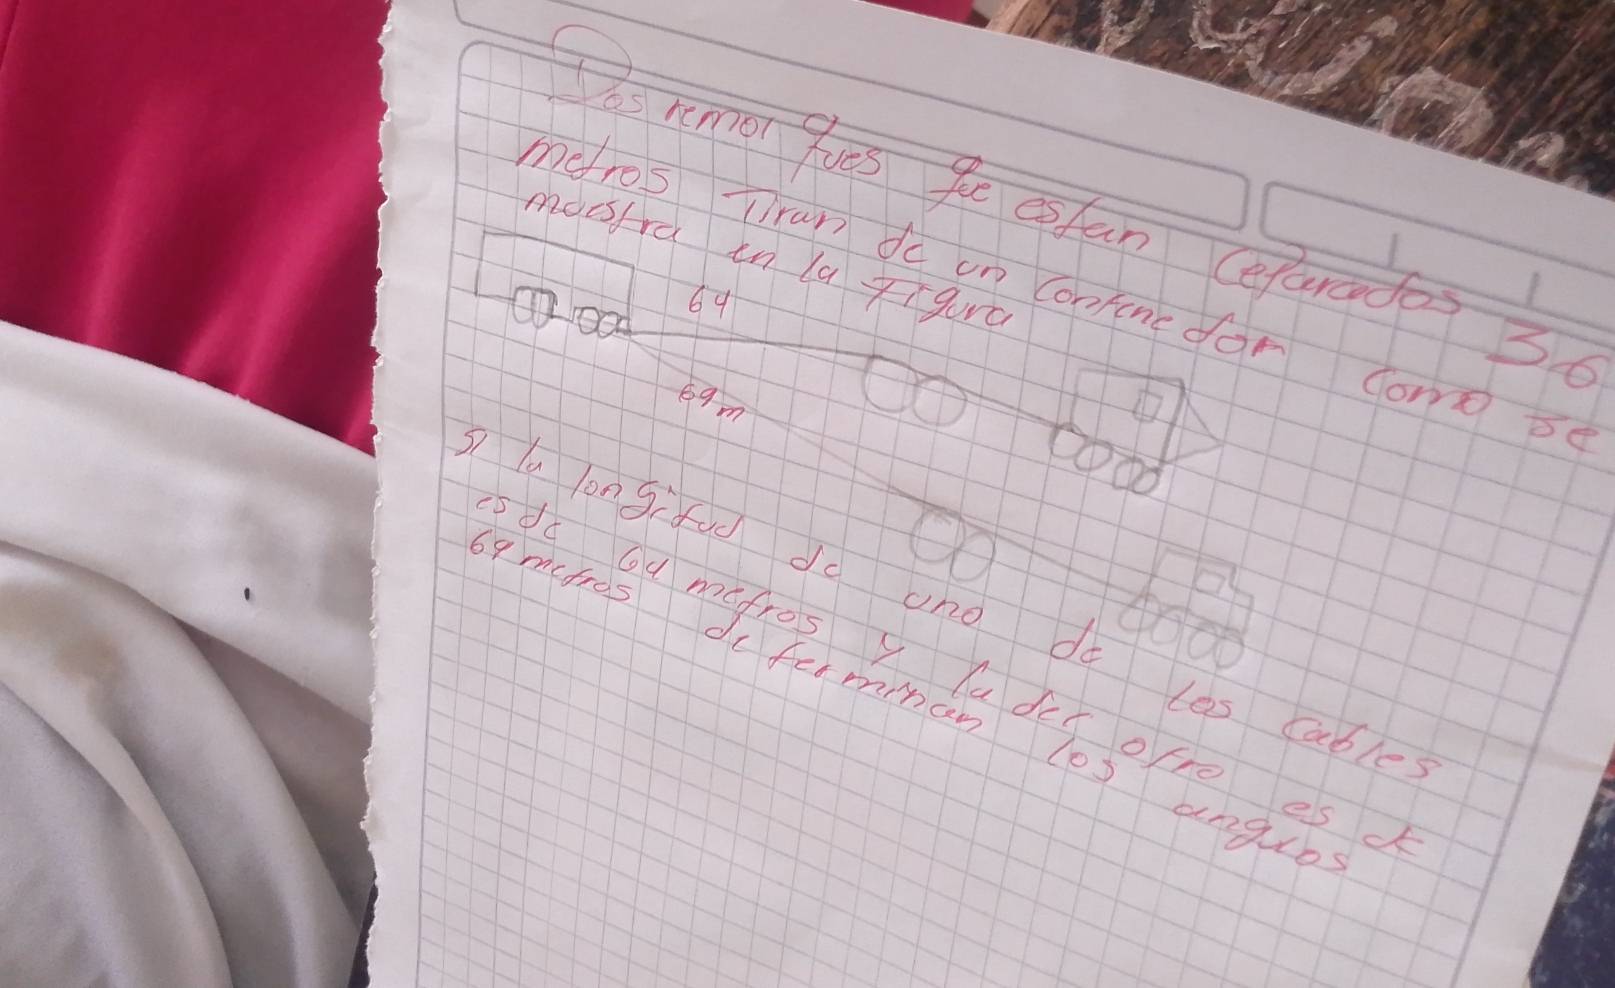 Dos remolques que estan Ceparados 36
metros Tiran de un Contenedor Como se
muestra en la Figura
64
69m
si la longitud de uno de los cables
es de 64 metros y la del otro es de
69 metros determinan los anguos